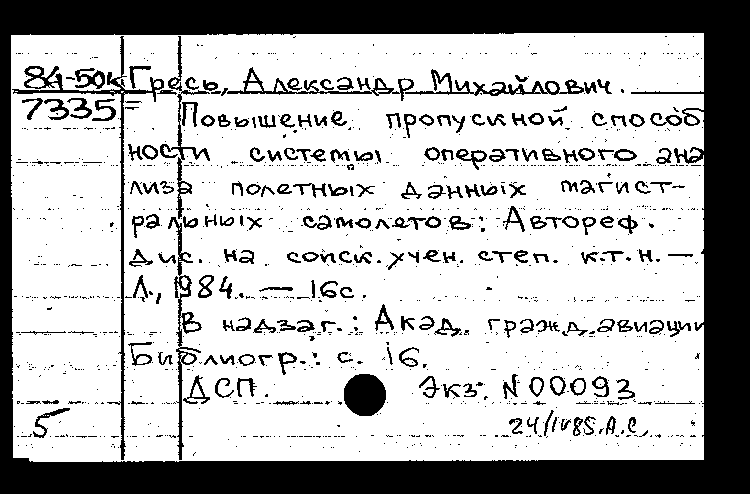 84-50к Гресь, Александр Михайлович.
7335= Повышение пропускной способ
ности системы оперативного ана
лиза полетных данных магист-
ральных самолетов: Автореф.
дис. на соиск. учен. степ. к.т.н. —
Л., 1984. — 16с.
В надзаг.: Акад. гражд. авиации
Библиогр.: с. 16.
ДСП. Экз. N00093
5 24/IV85. А.С.